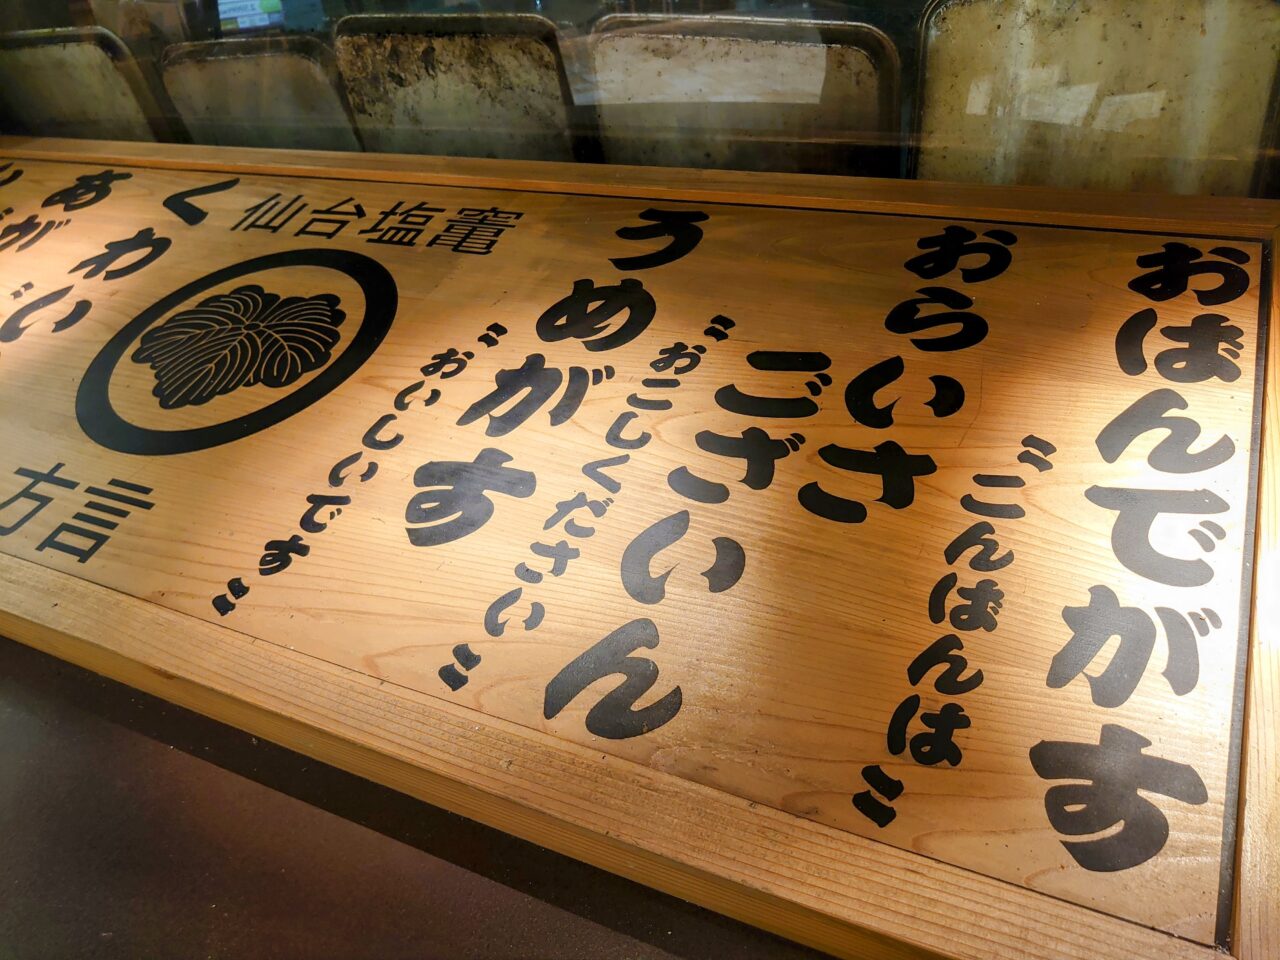 おばんでがす
〝こんばんは〟
おらいさ
ございん
〝おこしください〟
うめがす
〝おいしいです〟
仙台塩竈
方言
くわ
あがい